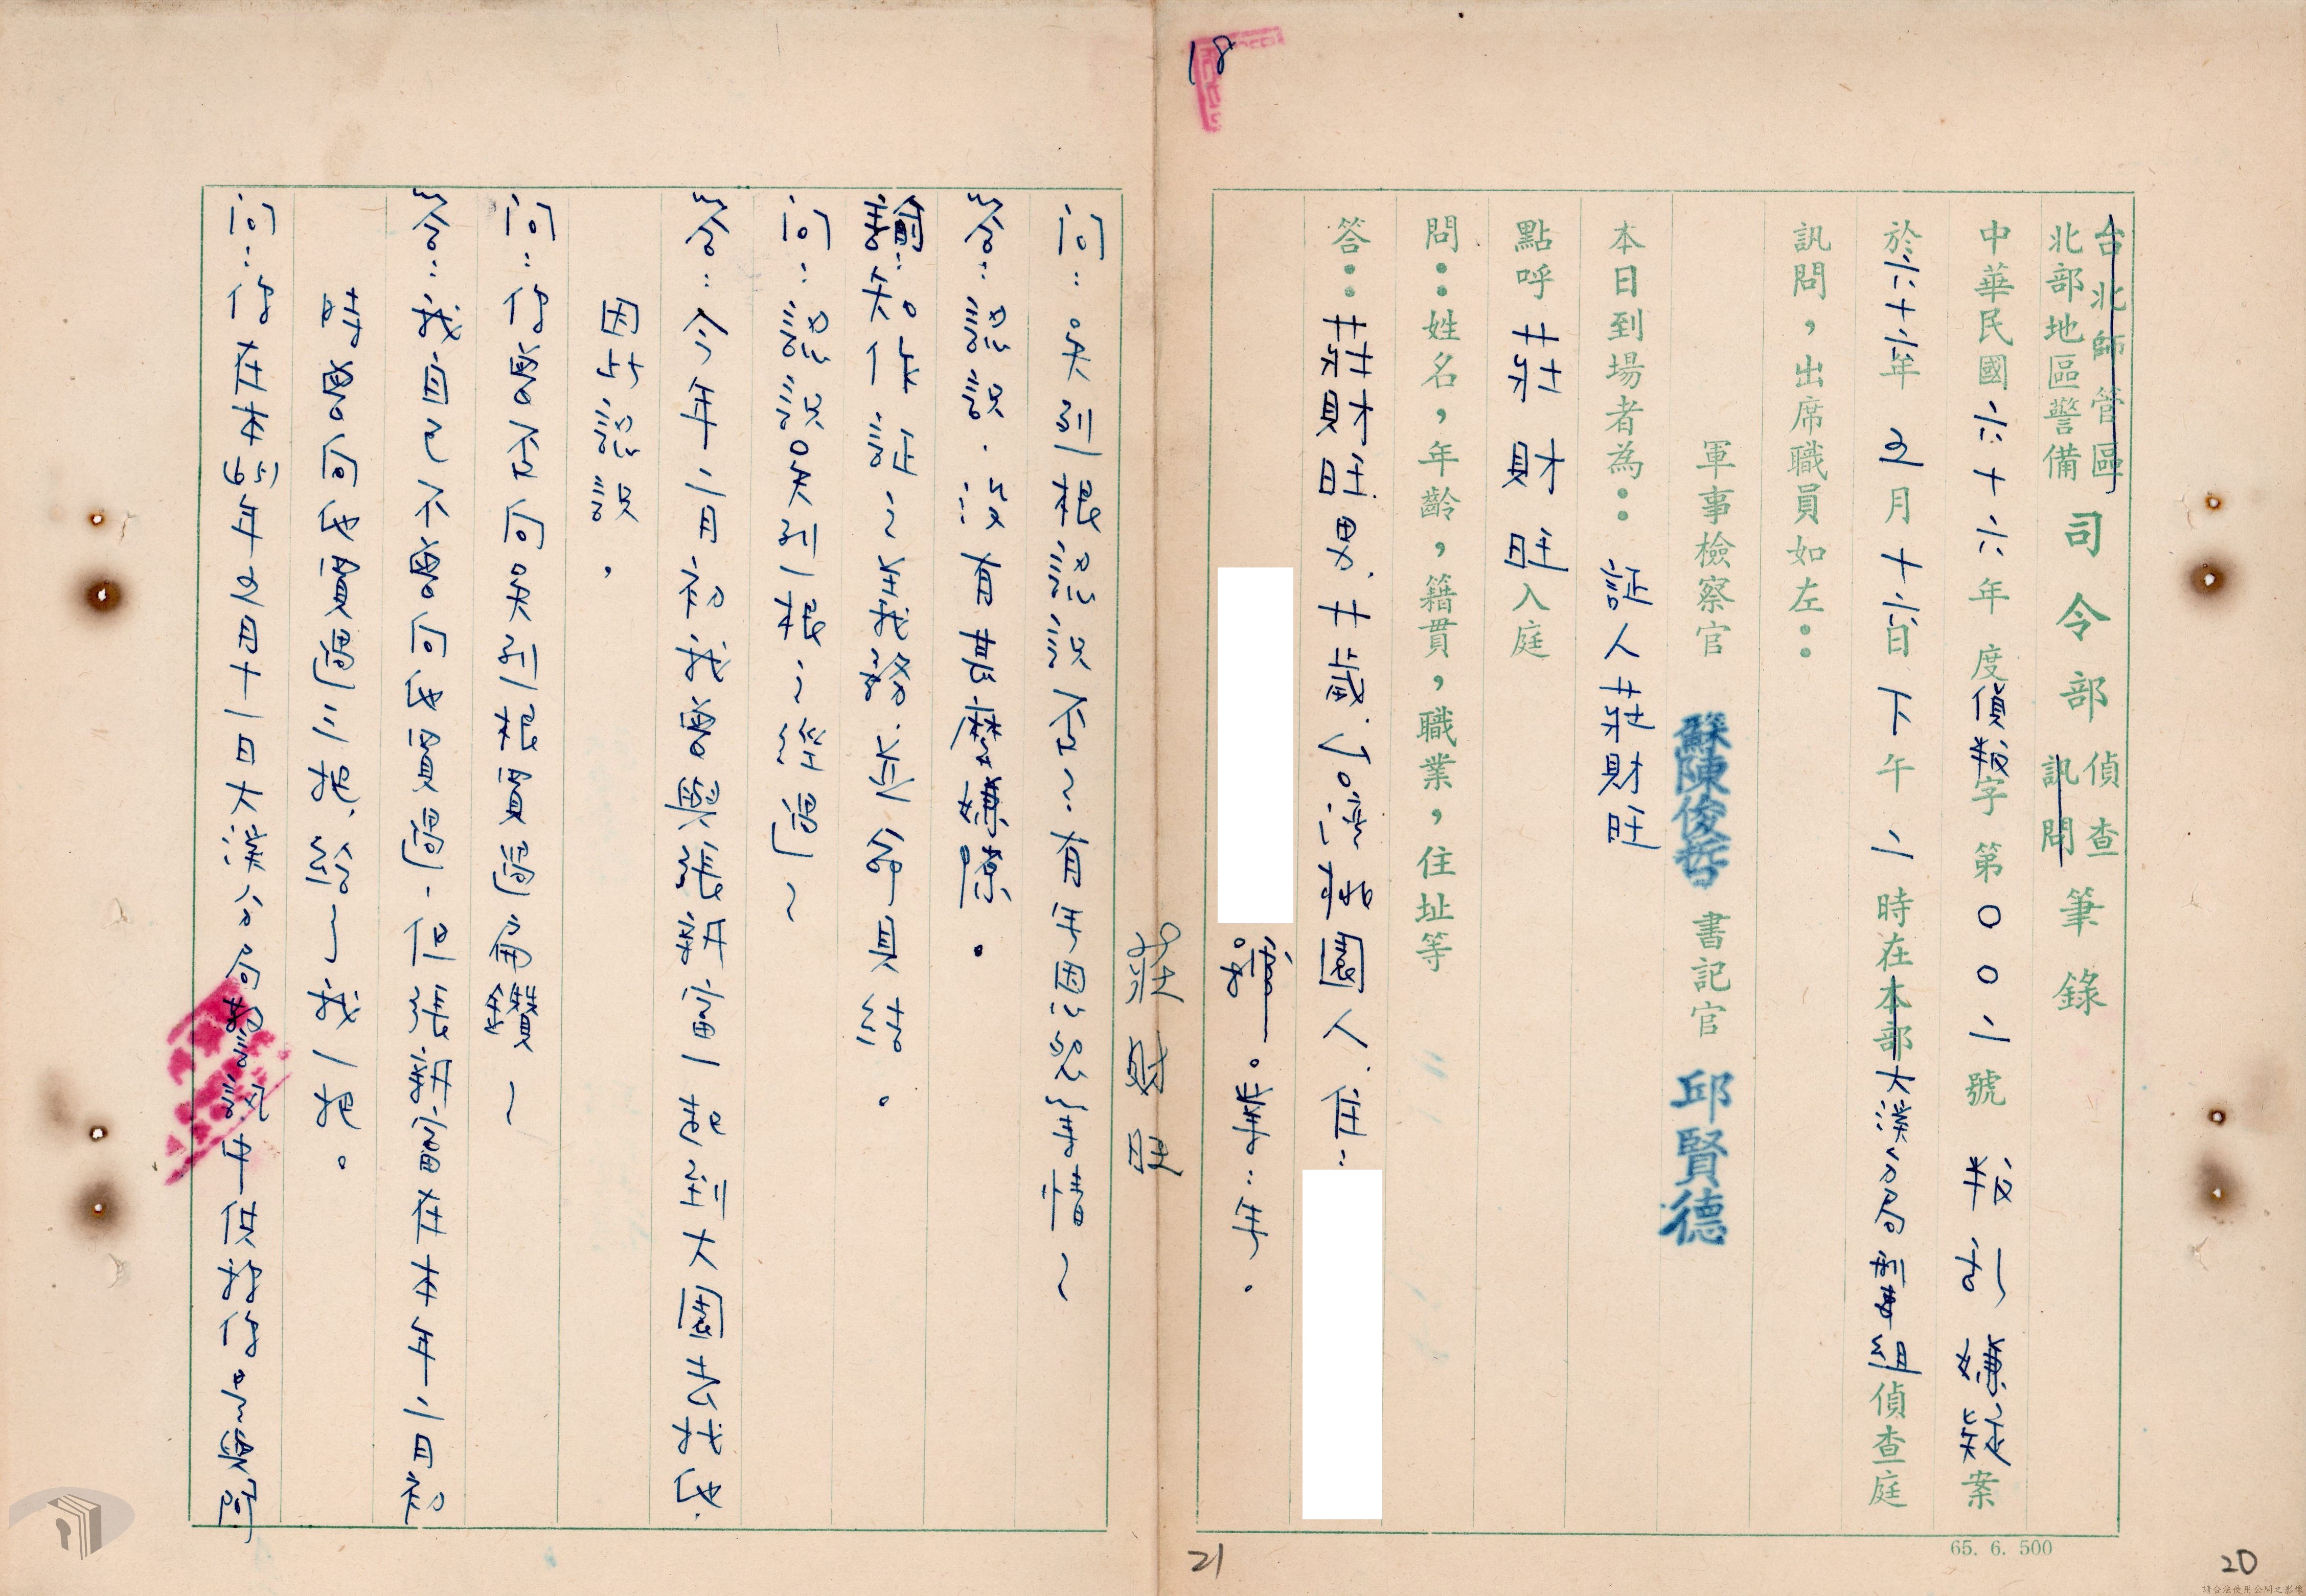 18
台北師管區
北部地區警備
司令部
偵查
訊問
筆錄
中華民國六十六年度偵叛字第〇〇二號 叛乱嫌疑案
於六十六年五月十六日下午二時在本部大溪分局刑事組偵查庭
訊問，出席職員如左：
軍事檢察官 陳俊哲 書記官 邱賢德
本日到場者為：証人莊財旺
點呼 莊財旺入庭
問：姓名，年齡，籍貫，職業，住址等
答：莊財旺.男.廿歲.台湾桃園人.住：
莊財旺
問：吳列根認识否？有无恩怨事情？
答：認识.没有甚麼嫌隙。
諭知作証之義務.並命具结。
問：認识吳列根之經過？
答：今年二月初我曾與張耕富一起到大園去找他.
因此認识。
問：你曾否向吳列根買過扁鑽？
答：我自己不曾向他買過.但張耕富在本年二月初
時曾向他買過三把.給了我一把。
問：你在本(65)年五月十一日大溪分局
供称你
65. 6. 500
21
20
請合法使用公開之影像